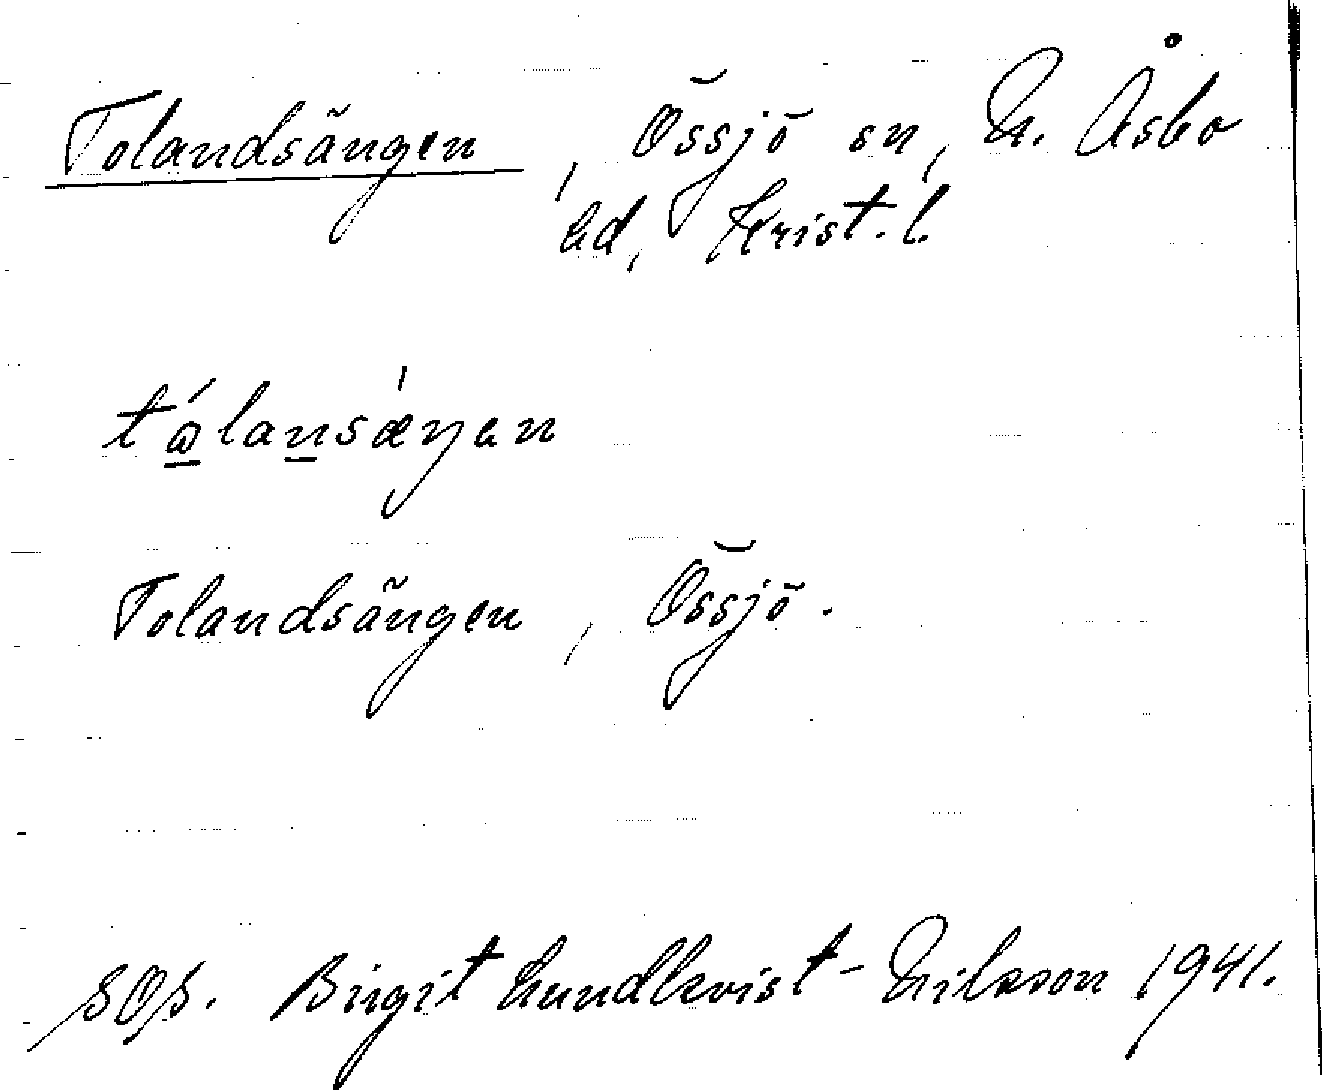 Tolandsängen, Össjö sn, N. Åsbo
hd, Krist. l.
tálansæŋen
Tolandsängen, Össjö.
SOS. Birgit Lundkvist-Nilsson 1941.